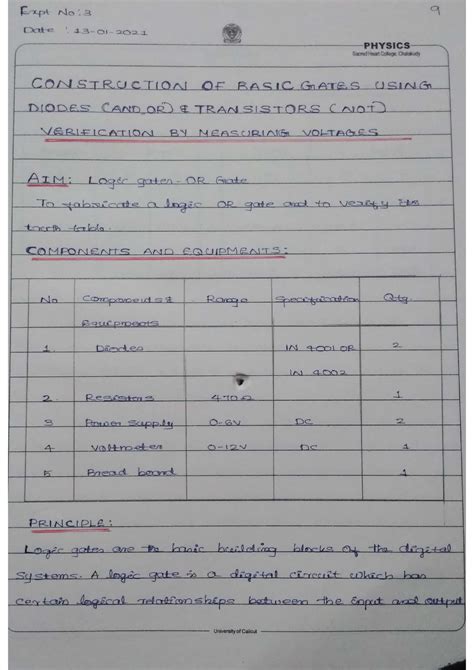 Expt No: 3
9
Date : 13-01-2021
PHYSICS
Sacred Heart College, Chalakudy
CONSTRUCTION OF BASIC GATES USING
DIODES (AND, OR) & TRANSISTORS (NOT)
VERIFICATION BY MEASURING VOLTAGES
AIM: Logic gates - OR Gate
To fabricate a logic OR gate and to verify its
truth table.
COMPONENTS AND EQUIPMENTS:
No Components & Range Specification Qty
Equipments
1. Diodes IN 4001 OR 2
IN 4002
2. Resistors 470Ω 1
3 Power Supply 0-6V DC 2
4 Voltmeter 0-12V DC 1
5 Bread board 1
PRINCIPLE:
Logic gates are the basic building blocks of the digital
systems. A logic gate is a digital circuit which has
certain logical relationships between the input and output
University of Calicut